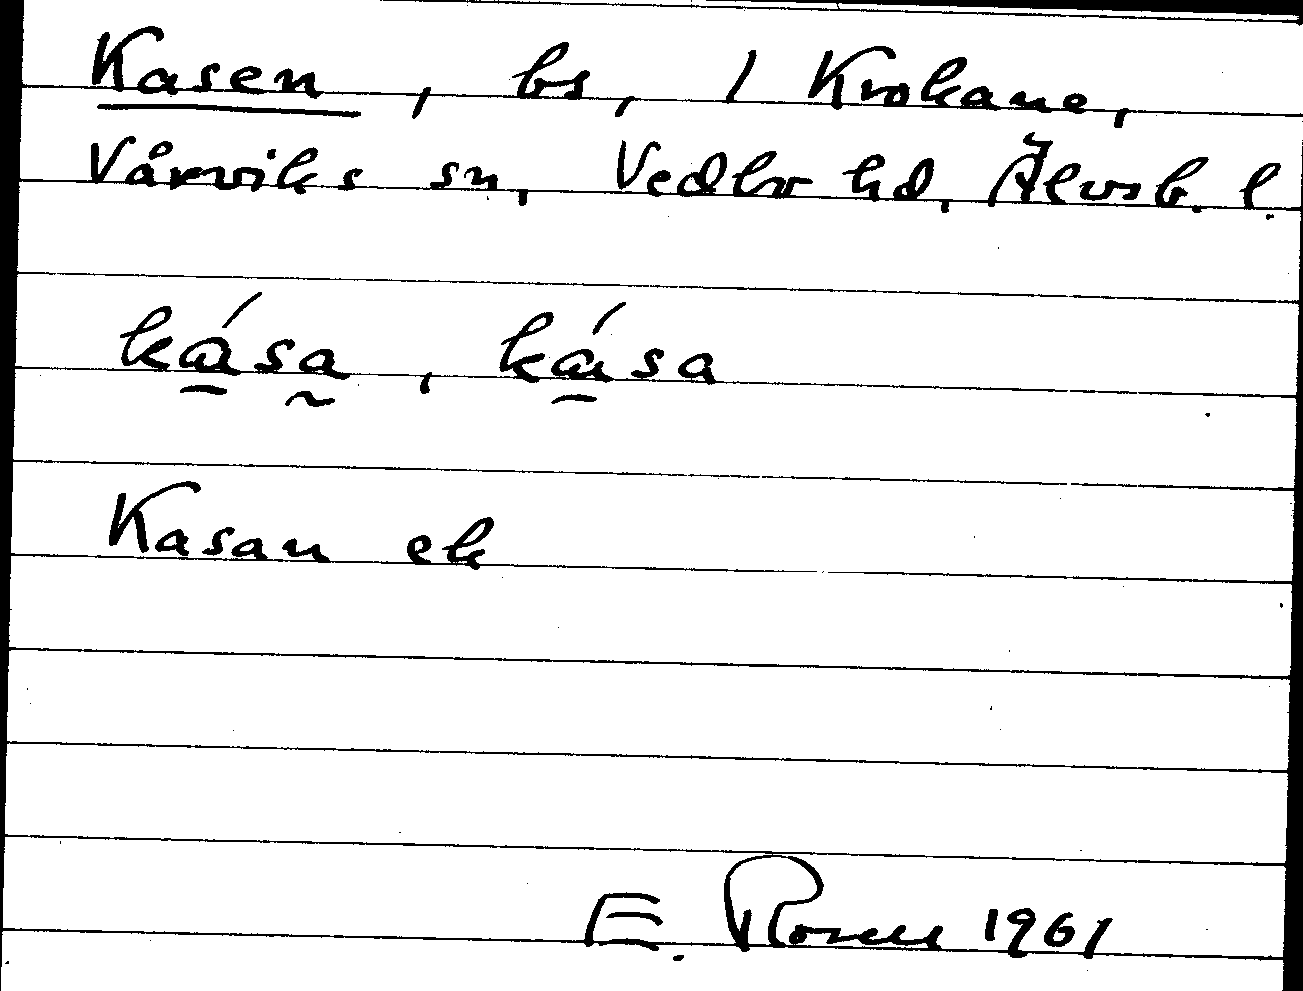 Kasen, bs, / Krokane,
Vårviks sn, Vedbo hd, Älvsb. l.
kása, kása
Kasan ek
E. Rosell 1961